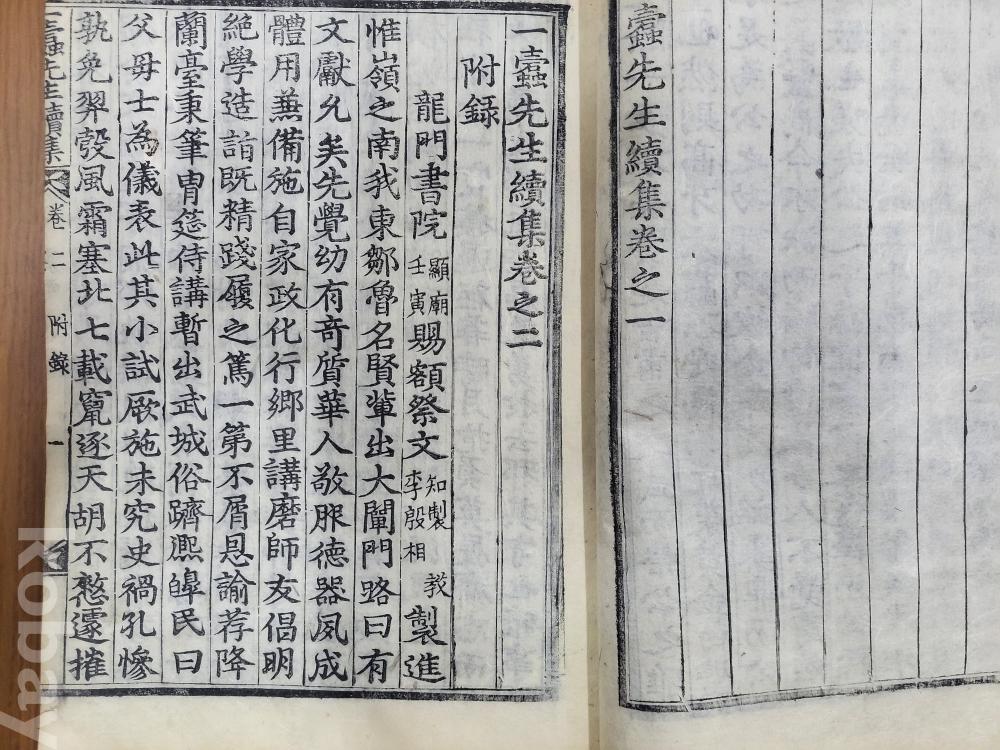 蠹先生續集卷之一
一蠹先生續集卷之二
附錄
龍門書院顯廟壬寅賜額祭文知製教李殷相製進
惟嶺之南我東鄒魯名賢輩出大闡門路曰有
文獻允矣先覺幼有奇質華人敬服德器夙成
體用兼備施自家政化行鄉里講磨師友倡明
絕學造詣既精踐履之篤一第不屑恩諭荐降
蘭臺秉筆胄筵侍講暫出武城俗躋熙皞民曰
父母士為儀表此其小試厥施未究史禍孔慘
孰免羿彀風霜塞北七載竄逐天胡不憖遽摧
一蠹先生續集 卷二 附錄 一
kobay